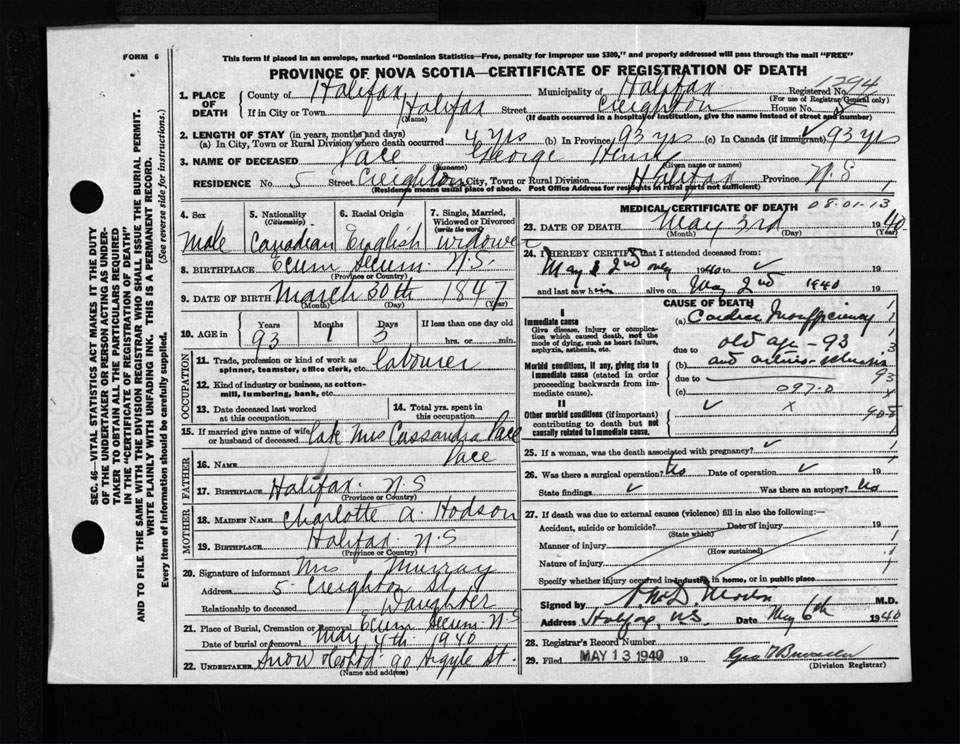 FORM 6
This form if placed in an envelope, marked "Dominion Statistics—Free, penalty for improper use $300," and properly addressed will pass through the mail "FREE"
PROVINCE OF NOVA SCOTIA—CERTIFICATE OF REGISTRATION OF DEATH
1. PLACE OF DEATH
County of Halifax Municipality of Halifax Registered No. 1794
(For use of Registrar General only)
If in City or Town Halifax Street Creighton House No. 5
(Name) (If death occurred in a hospital or institution, give the name instead of street and number)
2. LENGTH OF STAY (in years, months and days)
(a) In City, Town or Rural Division where death occurred 4 yrs (b) In Province 93 yrs (c) In Canada (if immigrant) 93 yrs
3. NAME OF DECEASED Pace George
(Surname) (Given name or names)
RESIDENCE No. 5 Street Creighton City, Town or Rural Division Halifax Province N.S.
(Residence means usual place of abode. Post Office Address for residents in rural parts not sufficient)
4. Sex Male
5. Nationality (Citizenship) Canadian
6. Racial Origin English
7. Single, Married, Widowed or Divorced (write the word) widower
8. BIRTHPLACE Ecum Secum N.S.
(Province or Country)
9. DATE OF BIRTH March 30th 1847
(Month) (Day) (Year)
10. AGE in Years Months Days If less than one day old
93 1 3 hrs. or min.
OCCUPATION
11. Trade, profession or kind of work as spinner, teamster, office clerk, etc. labourer
12. Kind of industry or business, as cotton-mill, lumbering, bank, etc.
13. Date deceased last worked at this occupation
14. Total yrs. spent in this occupation
15. If married give name of wife or husband of deceased late Mrs Cassandra Pace
FATHER
16. NAME Pace
17. BIRTHPLACE Halifax N.S
(Province or Country)
MOTHER
18. MAIDEN NAME Charlotte A. Hodson
19. BIRTHPLACE Halifax N.S
(Province or Country)
20. Signature of informant Mrs Murray
Address 5 Creighton St.
Relationship to deceased Daughter
21. Place of Burial, Cremation or Removal Ecum Secum N.S
Date of burial or removal May 4th 1940
22. UNDERTAKER Snow & Co Ltd 90 Argyle St.
(Name and address)
MEDICAL CERTIFICATE OF DEATH 08.01.13
23. DATE OF DEATH May 3rd 1940
(Month) (Day) (Year)
24. I HEREBY CERTIFY that I attended deceased from:
May 2nd only 1940 to 19
and last saw him alive on May 2nd 1940 19
CAUSE OF DEATH
I
Immediate cause (a) Cardiac Insufficiency
Give disease, injury or complication which caused death, not the mode of dying, such as heart failure, asphyxia, asthenia, etc.
due to old age - 93
Morbid conditions, if any, giving rise to immediate cause (stated in order proceeding backwards from immediate cause).
(b) and
due to
(c) 097-0
II
Other morbid conditions (if important) contributing to death but not causally related to immediate cause.
25. If a woman, was the death associated with pregnancy?
26. Was there a surgical operation? No Date of operation 19
State findings Was there an autopsy? No
27. If death was due to external causes (violence) fill in also the following:—
Accident, suicide or homicide? Date of injury 19
(State which)
Manner of injury
(How sustained)
Nature of injury
Specify whether injury occurred in industry, in home, or in public place
Signed by M.D.
Address Halifax, N.S. Date May 6th 1940
28. Registrar's Record Number
29. Filed MAY 13 1940 19
(Division Registrar)
SEC. 46—VITAL STATISTICS ACT MAKES IT THE DUTY
OF THE UNDERTAKER OR PERSON ACTING AS UNDER-
TAKER TO OBTAIN ALL THE PARTICULARS REQUIRED
IN THE "CERTIFICATE OF REGISTRATION OF DEATH"
AND TO FILE THE SAME WITH THE DIVISION REGISTRAR WHO SHALL ISSUE THE BURIAL PERMIT.
WRITE PLAINLY WITH UNFADING INK. THIS IS A PERMANENT RECORD.
Every item of information should be carefully supplied. (See reverse side for instructions.)